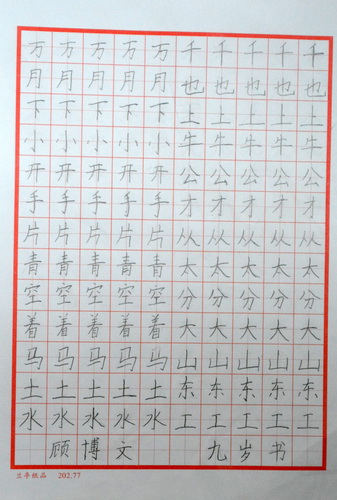 万万万万万千千千千千
月月月月月也也也也也
下下下下下上上上上上
小小小小小牛牛牛牛牛
开开开开开公公公公公
手手手手手才才才才才
片片片片片从从从从从
青青青青青太太太太太
空空空空空分分分分分
着着着着着大大大大大
马马马马马山山山山山
土土土土土东东东东东
水水水水水工工工工工
顾博文 九岁书
兰亭纸品 202.77